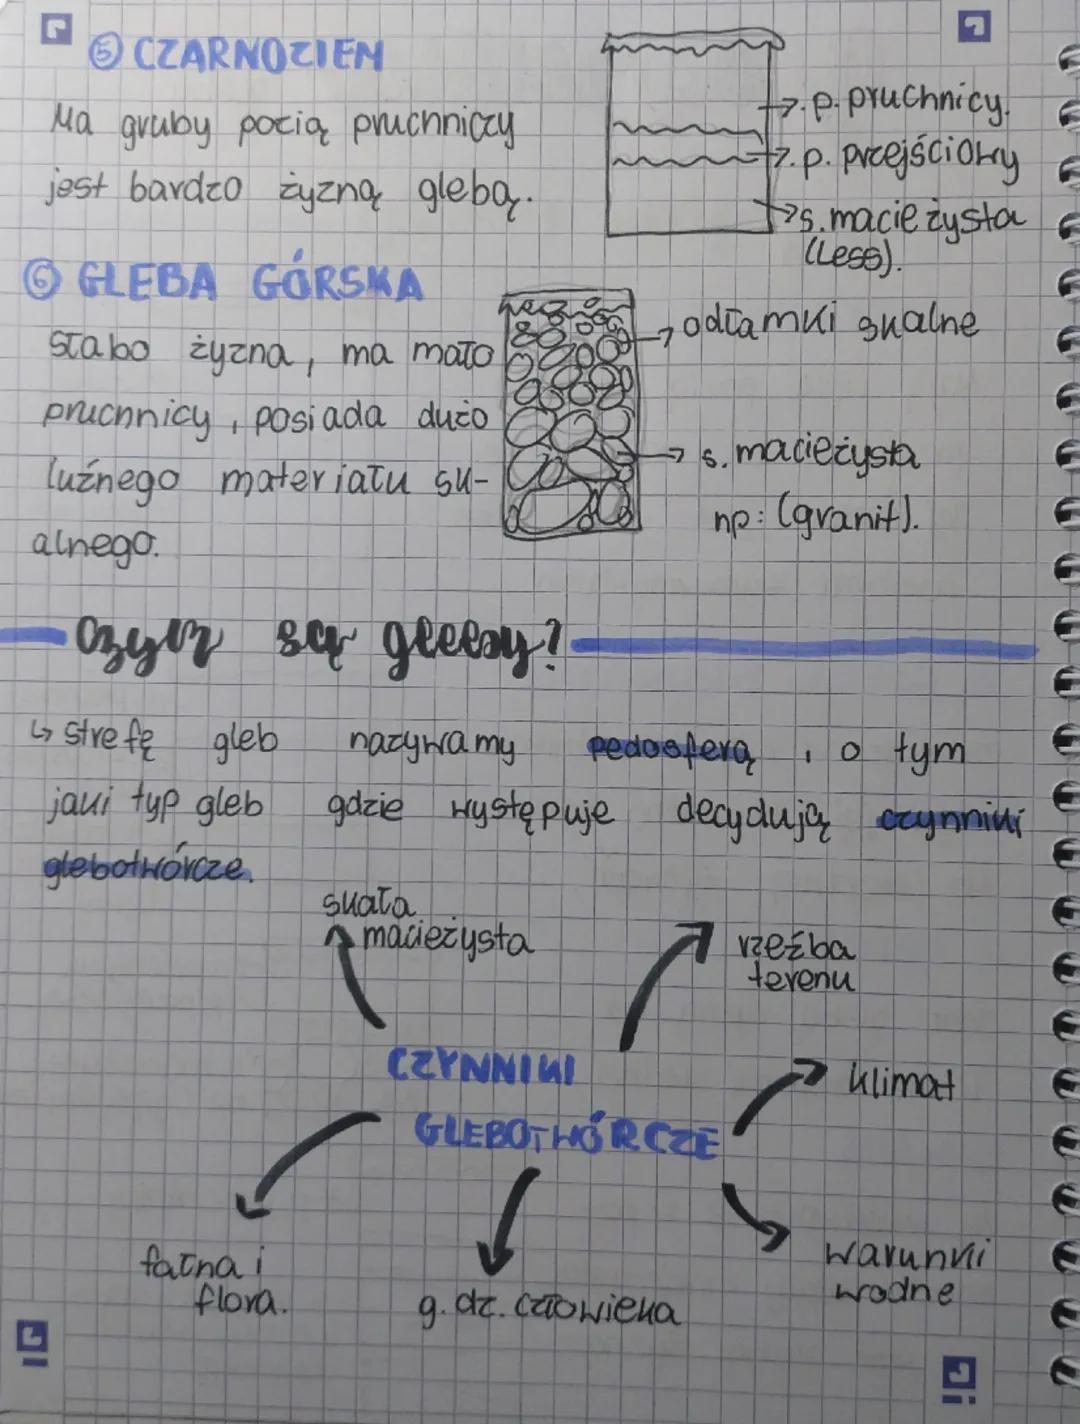 ⑤ CZARNOZIEM
Ma gruby pozią pruchniczy
jest bardzo żyzną glebą.
p. pruchnicy.
p. przejściowy
s. macieżysta
(Less).
⑥ GLEBA GÓRSKA
Słabo żyzna, ma mało
pruchnicy, posiada dużo
luźnego materiału sk-
alnego.
odłamki skalne
s. macieżysta
np: (granit).
Czym są gleby?
↳ strefę gleb nazywamy pedosferą, o tym
jaki typ gleb gdzie występuje decydują czynniki
glebotwórcze.
skała
macieżysta
rzeźba
terenu
CZYNNIKI
GLEBOTWÓRCZE
klimat
warunki
wodne
g. dz. człowieka
fałna i
flora.